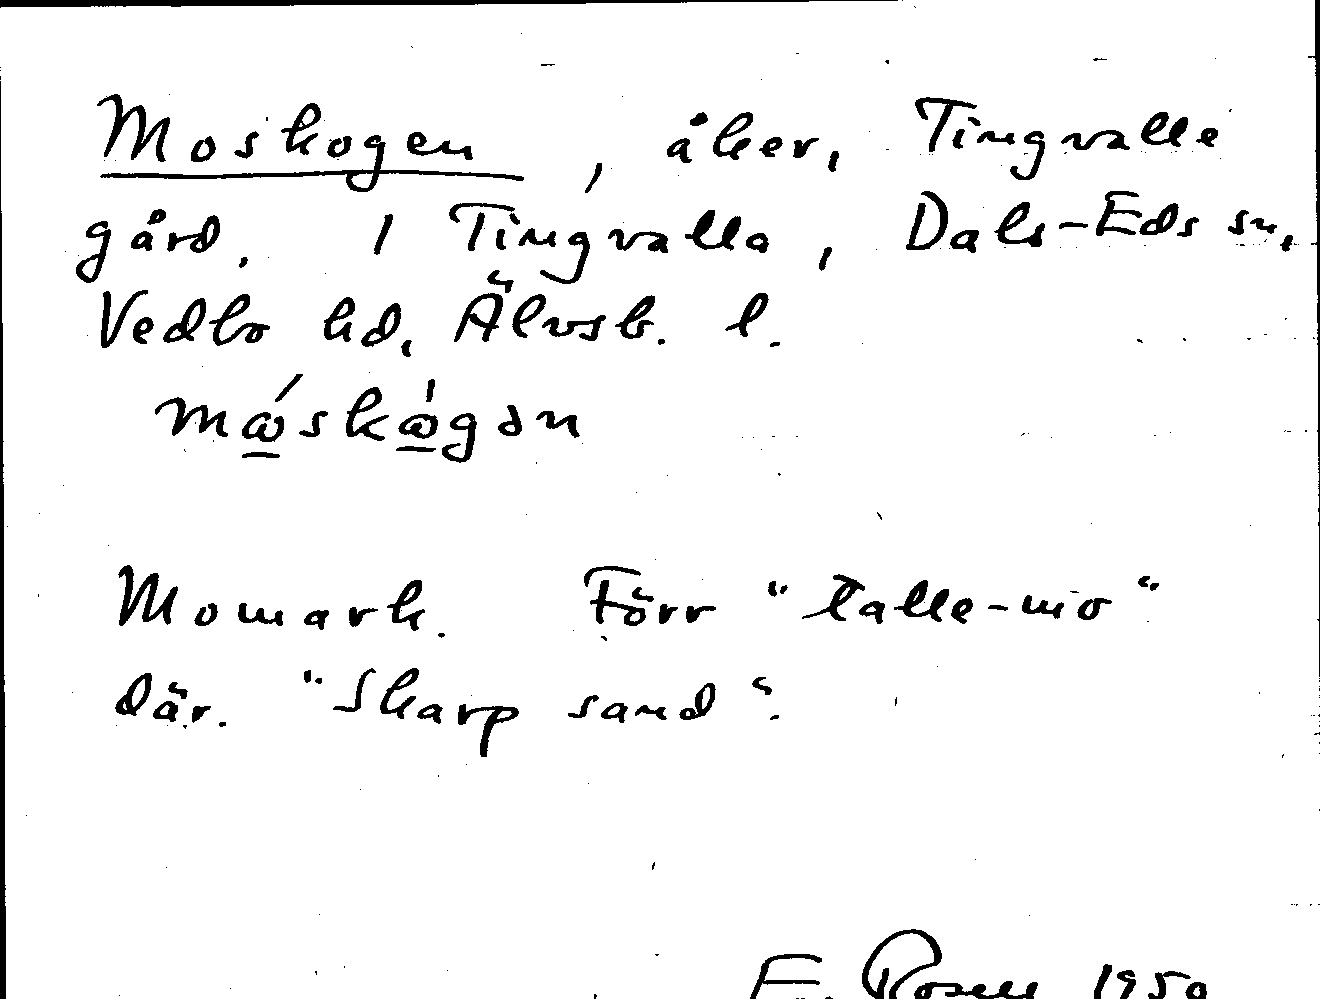 Moskogen, åker, Tingvalla
gård, 1 Tingvalla, Dals-Eds sn,
Vedbo hd, Älvsb. l.
mǿskògən
Momark. Förr "talle-mo"
där. "Skarp sand".
E. Rosell 1950